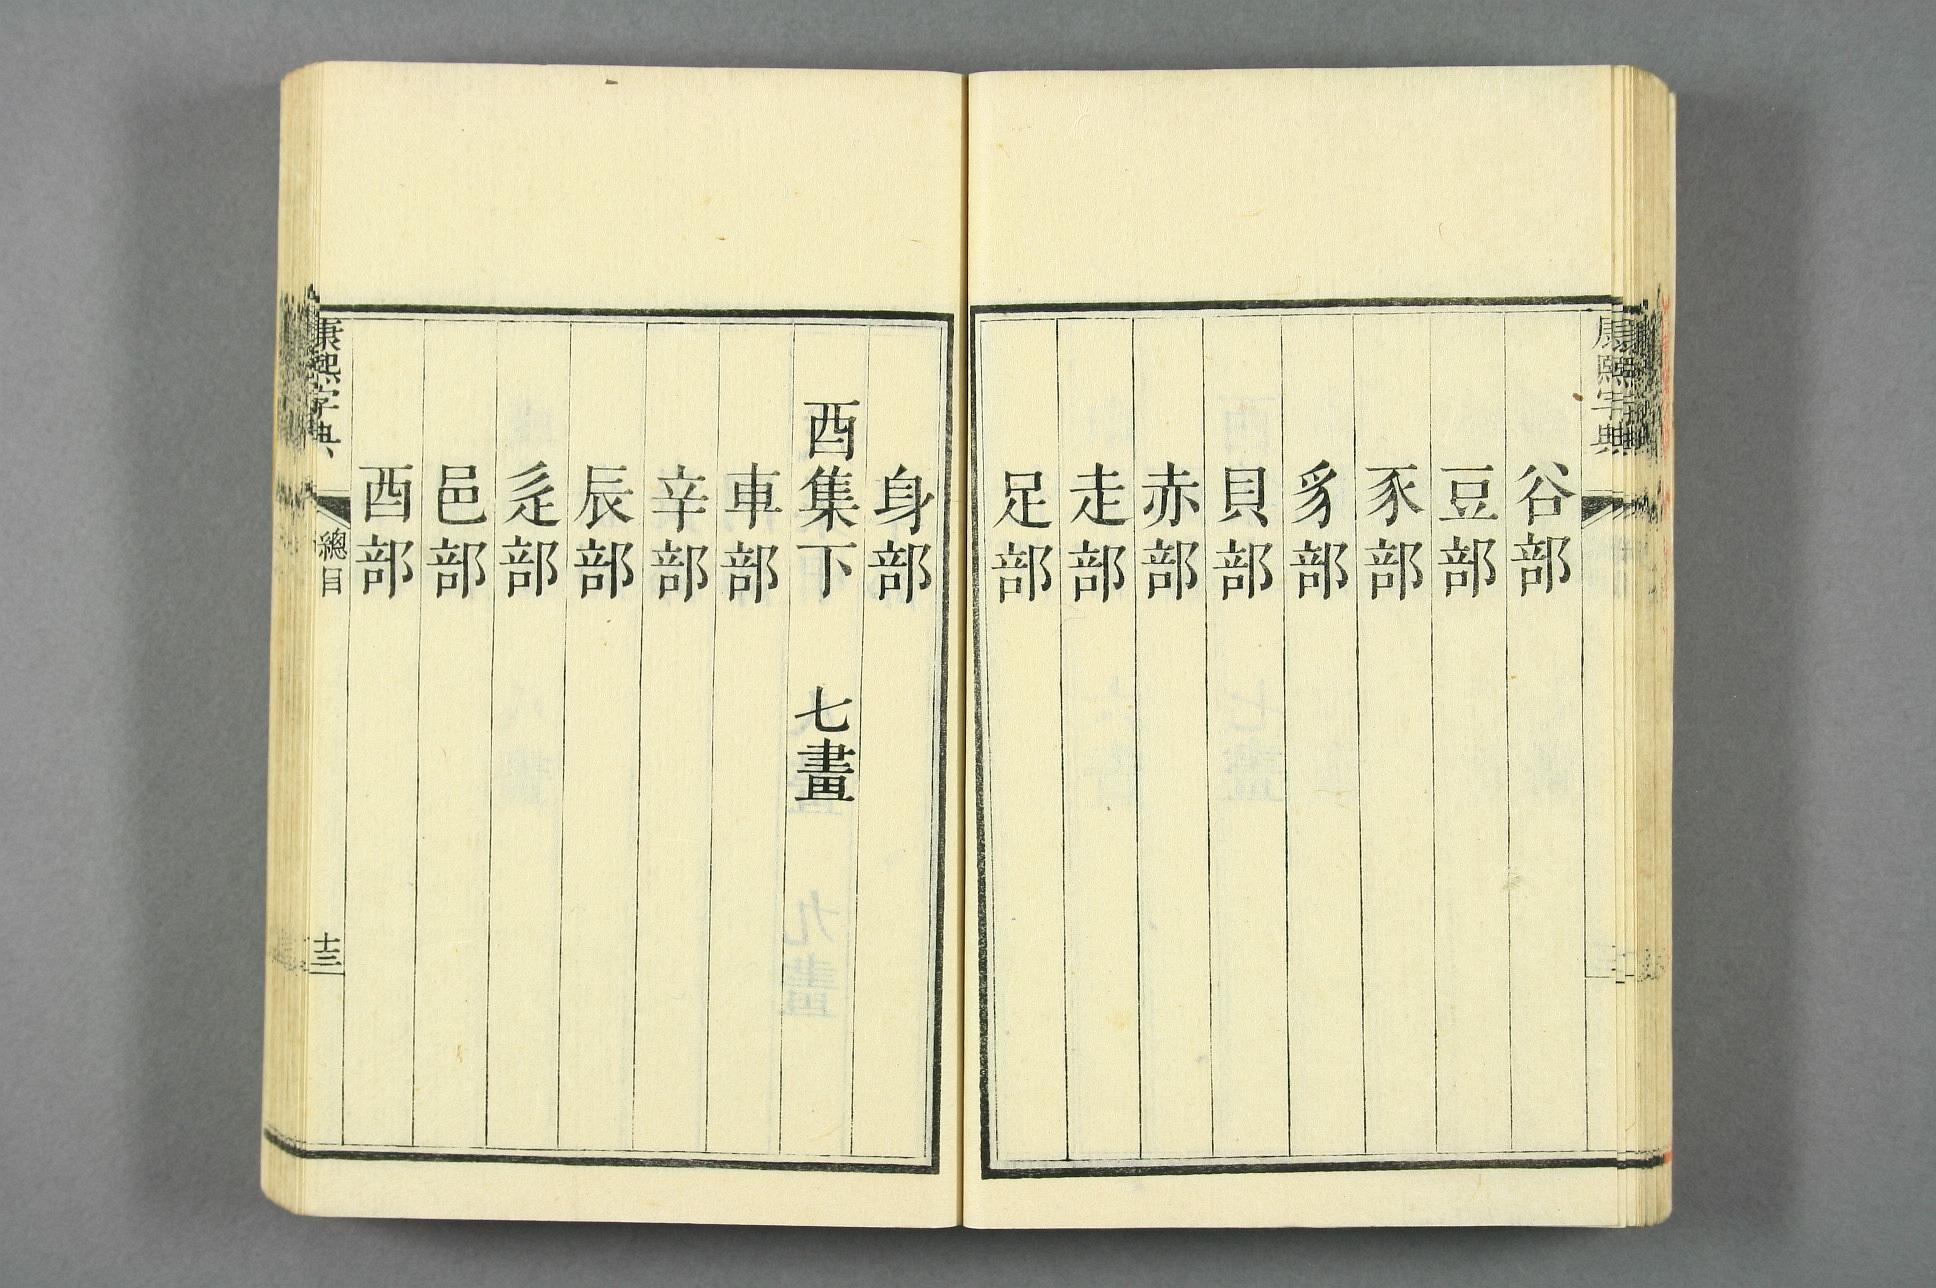 康熙字典
谷部
豆部
豕部
豸部
貝部
赤部
走部
足部
身部
酉集下 七畫
車部
辛部
辰部
辵部
邑部
酉部
康熙字典
總目
十三